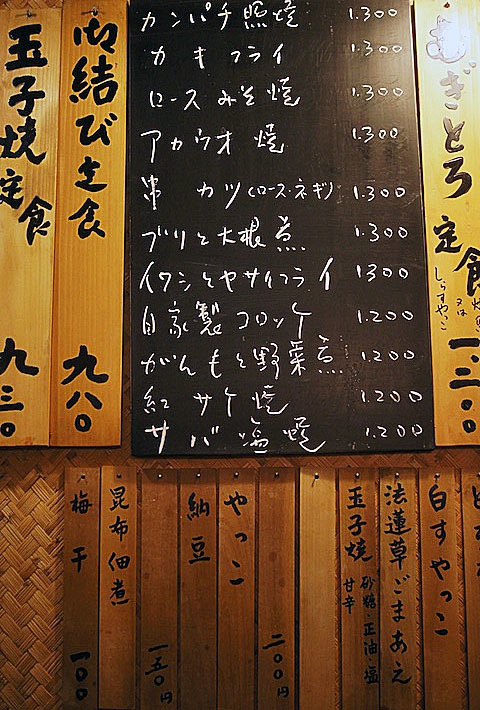 カンパチ照焼 1.300
カキフライ 1.300
ロースみそ焼 1.300
アカウオ焼 1.300
串カツ(ロース・ネギ) 1.300
ブリと大根煮 1.300
イワシとヤサイフライ 1300
自家製コロッケ 1.200
がんもと野菜煮 1.200
紅サケ焼 1.200
サバ塩焼 1.200
むぎとろ定食
又は
しらすやっこ
一、三〇〇
御結び定食 九八〇
玉子焼定食 九三〇
白すやっこ
法蓮草ごまあえ
玉子焼
砂糖・正油・塩
甘辛
二〇〇円
やっこ
納豆
一五〇円
昆布佃煮
梅干 一〇〇